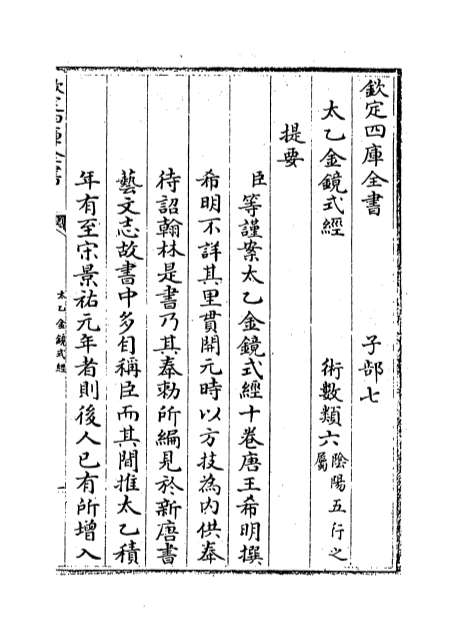 欽定四庫全書　子部七
太乙金鏡式經　術數類六 陰陽五行之屬
提要
臣等謹案太乙金鏡式經十卷唐王希明撰
希明不詳其里貫開元時以方技為內供奉
待詔翰林是書乃其奉勅所編見於新唐書
藝文志故書中多自稱臣而其間推太乙積
年有至宋景祐元年者則後人已有所增入
欽定四庫全書
太乙金鏡式經